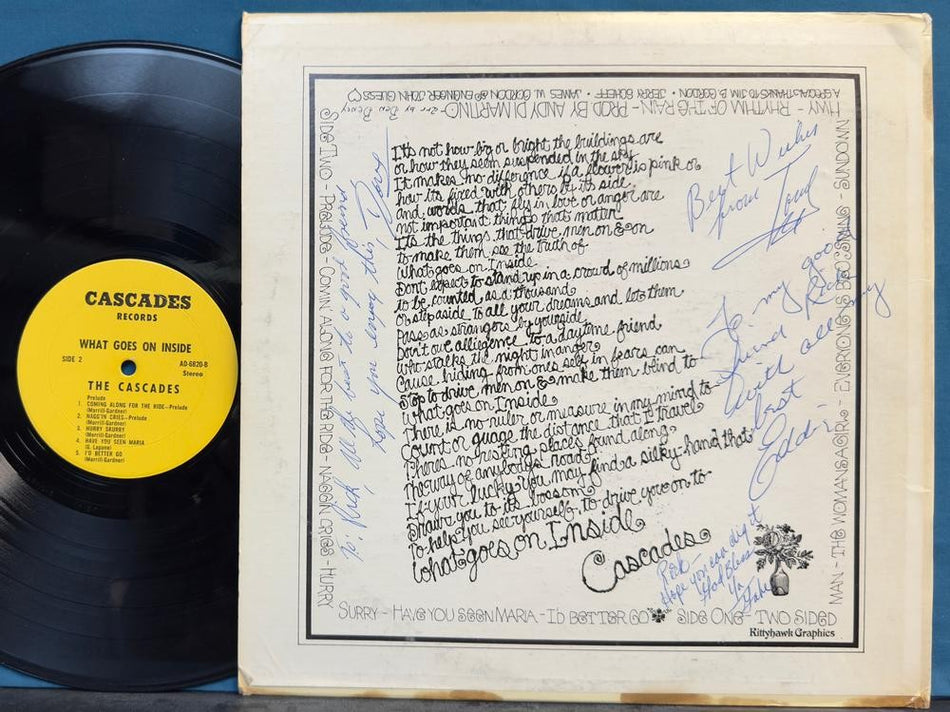 CASCADES
RECORDS
WHAT GOES ON INSIDE
SIDE 2
AD-6820-B
Stereo
THE CASCADES
Prelude
1. COMING ALONG FOR THE RIDE—Prelude
(Morrill-Gardner)
2. NAGG'N CRIES—Prelude
(Morrill-Gardner)
3. HURRY SKURRY
(Morrill-Gardner)
4. HAVE YOU SEEN MARIA
(G. Lagano)
5. I'D BETTER GO
(Morrill-Gardner)
It's not how big or bright the buildings are
or how they seem suspended in the sky
It makes no difference if a flower is pink or
how its fixed with others by its side
and words that fly in love or anger are
not important things that matter
It's the things that drive men on & on
to make them see the truth of
What goes on Inside
Dont expect to stand up in a crowd of millions
to be counted as a thousand
Or step aside to all your dreams and lets them
Pass as strangers by your side
Don't owe allegence to a daytime friend
who stalks the night in anger
Cause hiding from ones self in fears can
Stop to drive men on & make them blind to
What goes on Inside
There is no ruler or measure in my mind to
Count or guage the distance that I travel
Theres no resting places found along
The way of anybody's road
If your lucky you may find a silky hand that
Draws you to its bosom
To help you see yourself, to drive you on to
What goes on Inside
Cascades
SIDE ONE - TWO SIDED
MAN - THE WOMANS A GIRL - EVERONE'S BLOSSOMING - SUNDOWN
HWY - RHYTHM OF THE RAIN - PROD BY ANDY DI MARTINO -
A SPECIAL THANKS TO JIM B. GORDON • JERRY SCHEFF • JAMES W. GORDON & ENGINEER JOHN GUESS
SIDE TWO - PRELUDE - COMIN' ALONG FOR THE RIDE - NAGGN CRIES - HURRY
SURRY - HAVE YOU SEEN MARIA - I'D BETTER GO
Kittyhawk Graphics
To: Rick, All my best to a good friend
hope you enjoy this, Dave
Best Wishes
from
To my good
friend Rick
with all my
best
Eddy
Rick
Hope you can dig it
God Bless
Ya
Gabe